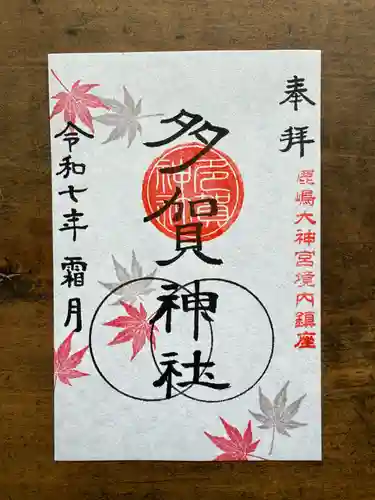 奉拝
鹿嶋大神宮境内鎮座
多賀神社
多賀神社
令和七年霜月